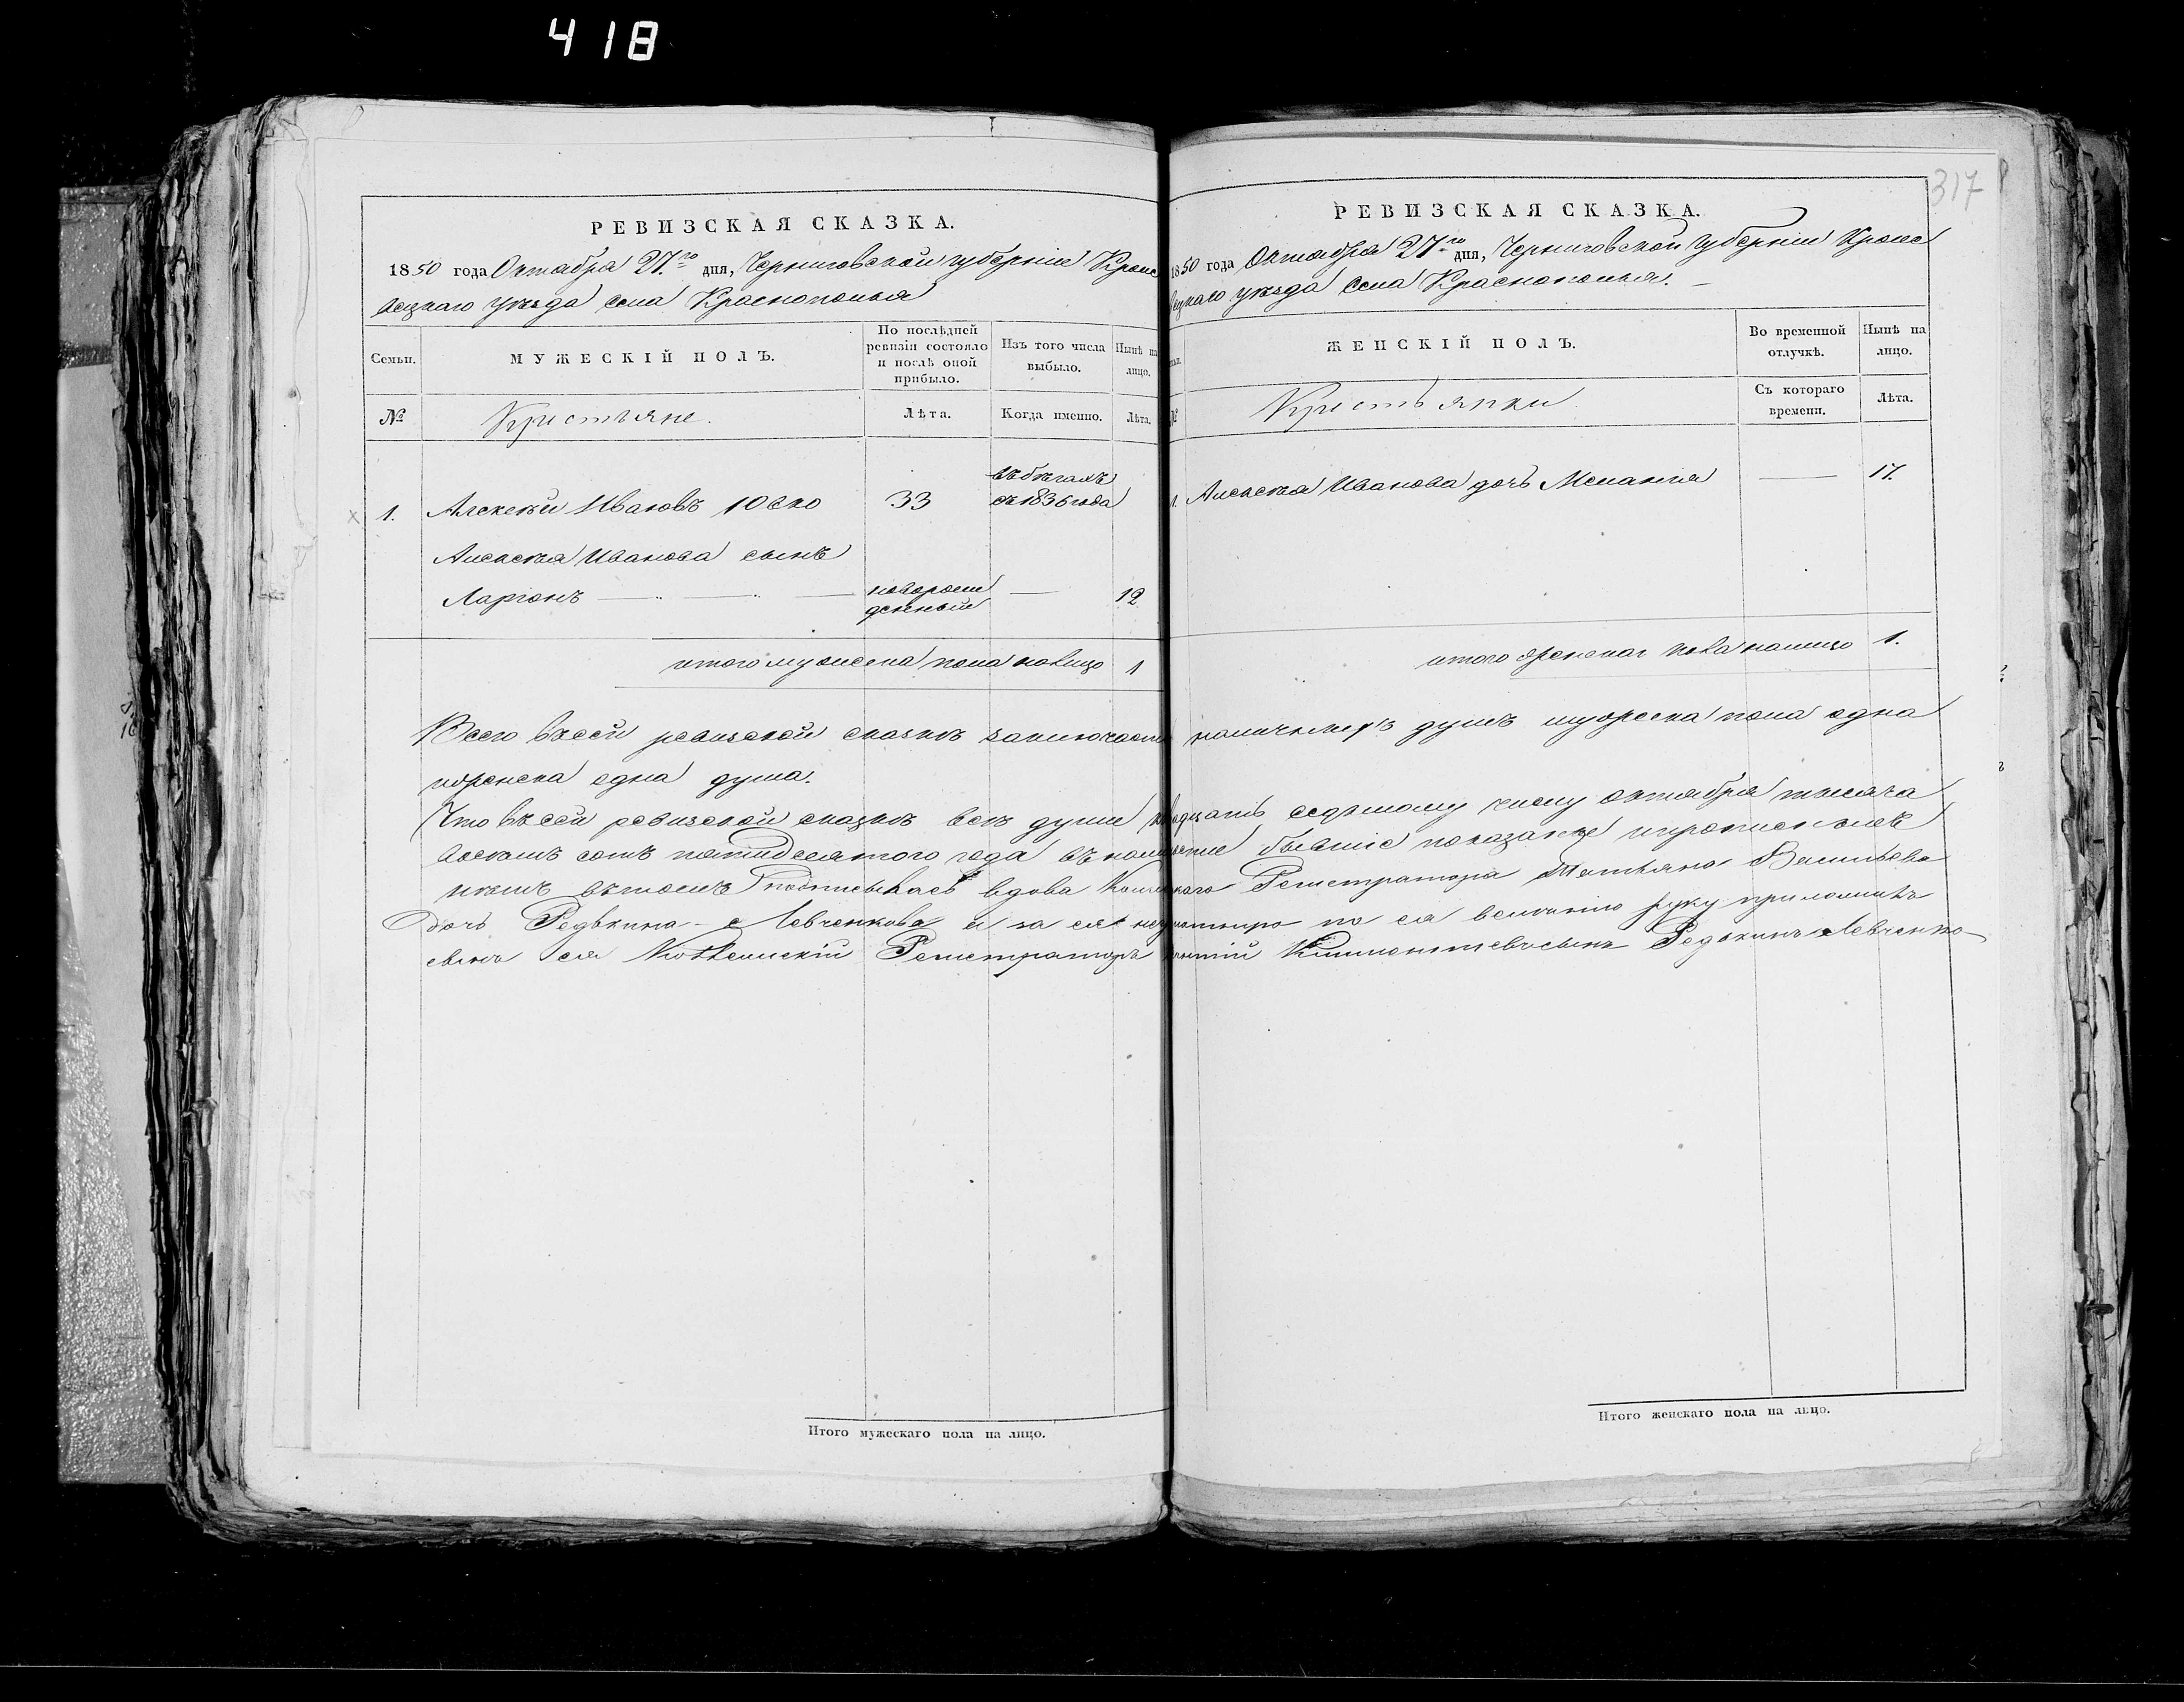 418
РЕВИЗСКАЯ СКАЗКА.
1850 года Октября 27го дня, Черниговской губерніи Кроле
вецкаго уѣзда села Краснополья
Семьи.
МУЖЕСКІЙ ПОЛЪ.
По послѣдней ревизіи состояло и послѣ оной прибыло.
Изъ того числа выбыло.
Нынѣ на лицо.
№
Крестьяне.
Лѣта.
Когда именно.
Лѣта.
1. Алексѣй Ивановъ 33 въ бѣгахъ съ 1836 года
Алексѣя Иванова сынъ
Ларіонъ новорож
денный 12
итого мужеска пола налицо 1
317
РЕВИЗСКАЯ СКАЗКА.
1850 года Октября 27го дня, Черниговской губерніи Кроле
вецкаго уѣзда села Краснополья.
ЖЕНСКІЙ ПОЛЪ.
Во временной отлучкѣ.
Нынѣ на лицо.
№
Крестьянки
Съ котораго времени.
Лѣта.
1. Алексѣя Иванова дочь Меланія 17.
итого женскаг пола налицо 1.
Всего въ сей ревизской сказкѣ заключается наличныхъ душъ мужеска пола одна
иженска одна душа.
Что въ сей ревизской сказкѣ всѣ души двадцать седьмому числу октября тысяча
восемь сотъ пятидесятого года въ наличіе бывшіе показаны
въ томъ подписалась вдова Регистратора Татьяна Васильева
дочь Редькина-Левченкова а за ея по ея веленію руку приложилъ
сынъ ея Коллежскій Регистраторъ Климентіевъ сынъ Редькинъ Левченко
Итого мужескаго пола на лицо.
Итого женскаго пола на лицо.